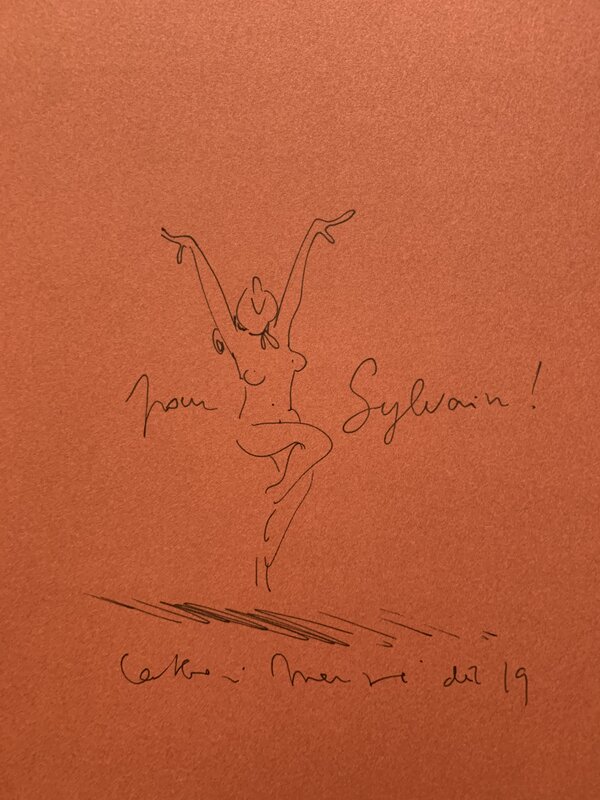 pour Sylvain !
Catherine Meurisse déc 19